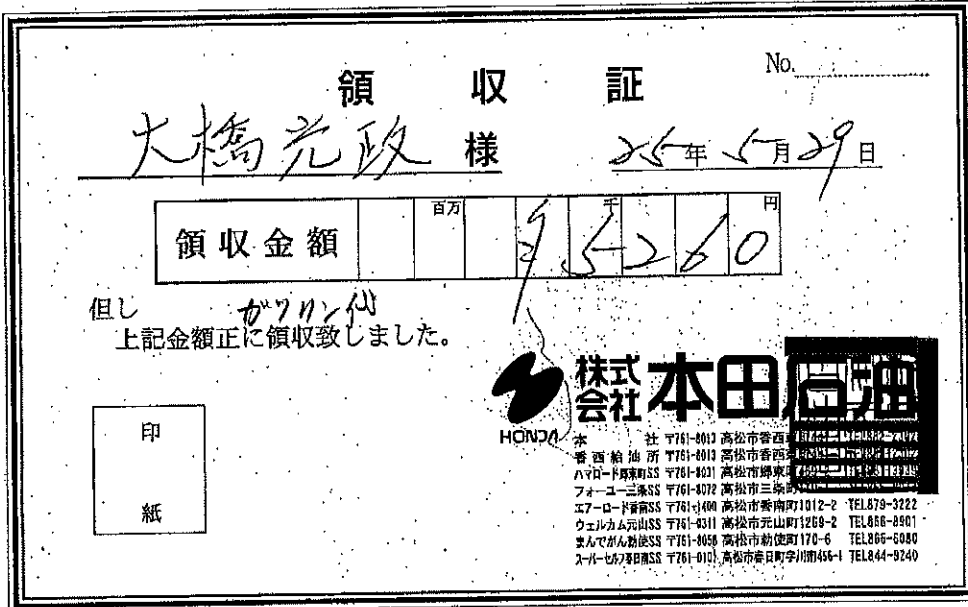 領収証
No.
大橋光政 様
25年5月29日
百万 千 円
領収金額 ¥5260
但し ガソリン代
上記金額正に領収致しました。
印
紙
HONDA
株式会社 本田石油
本社 〒761-8013 高松市香西
香西給油所 〒761-8013 高松市香西
ハマロード郷東町SS 〒761-8031 高松市郷東
フォーユー三条SS 〒761-8072 高松市三条
エアーロード香南SS 高松市香南町1012-2 TEL879-3222
ウェルカム元山SS 〒761-0311 高松市元山町1269-2 TEL866-8901
まんでがん勅使SS 〒761-8056 高松市勅使町170-6 TEL866-6080
スーパーセルフ春日南SS 〒761-0101 高松市春日町字川南456-1 TEL844-9240